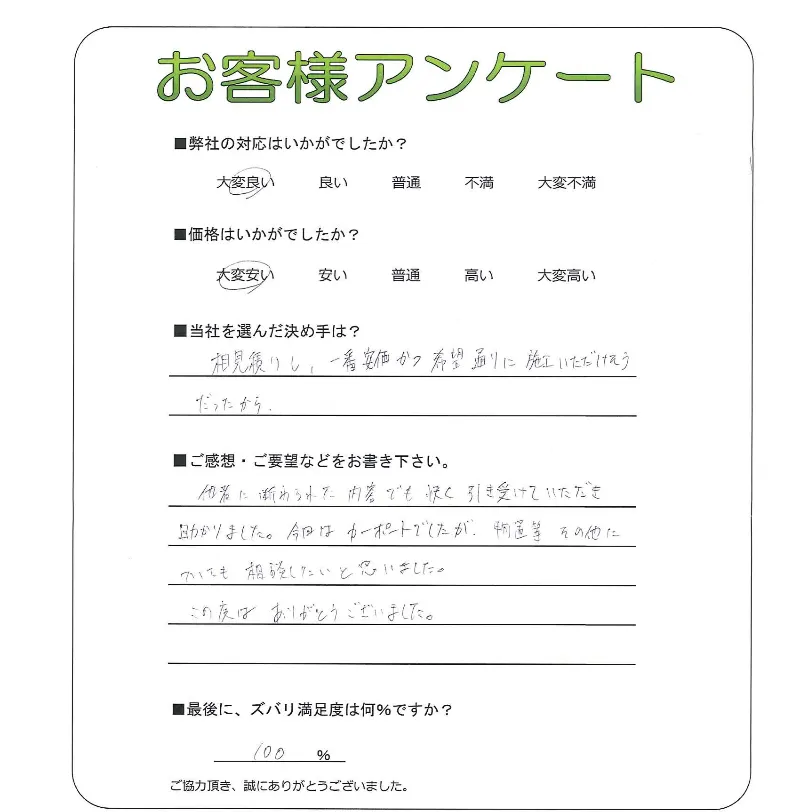 お客様アンケート
■弊社の対応はいかがでしたか？
大変良い 良い 普通 不満 大変不満
■価格はいかがでしたか？
大変安い 安い 普通 高い 大変高い
■当社を選んだ決め手は？
相見積りし、一番安価かつ希望通りに施工いただけそう
だったから.
■ご感想・ご要望などをお書き下さい。
他者に断わられた内容でも快く引き受けていただき
助かりました。今回はカーポートでしたが、物置等その他に
ついても相談したいと思いました。
この度はありがとうございました。
■最後に、ズバリ満足度は何%ですか？
100 %
ご協力頂き、誠にありがとうございました。